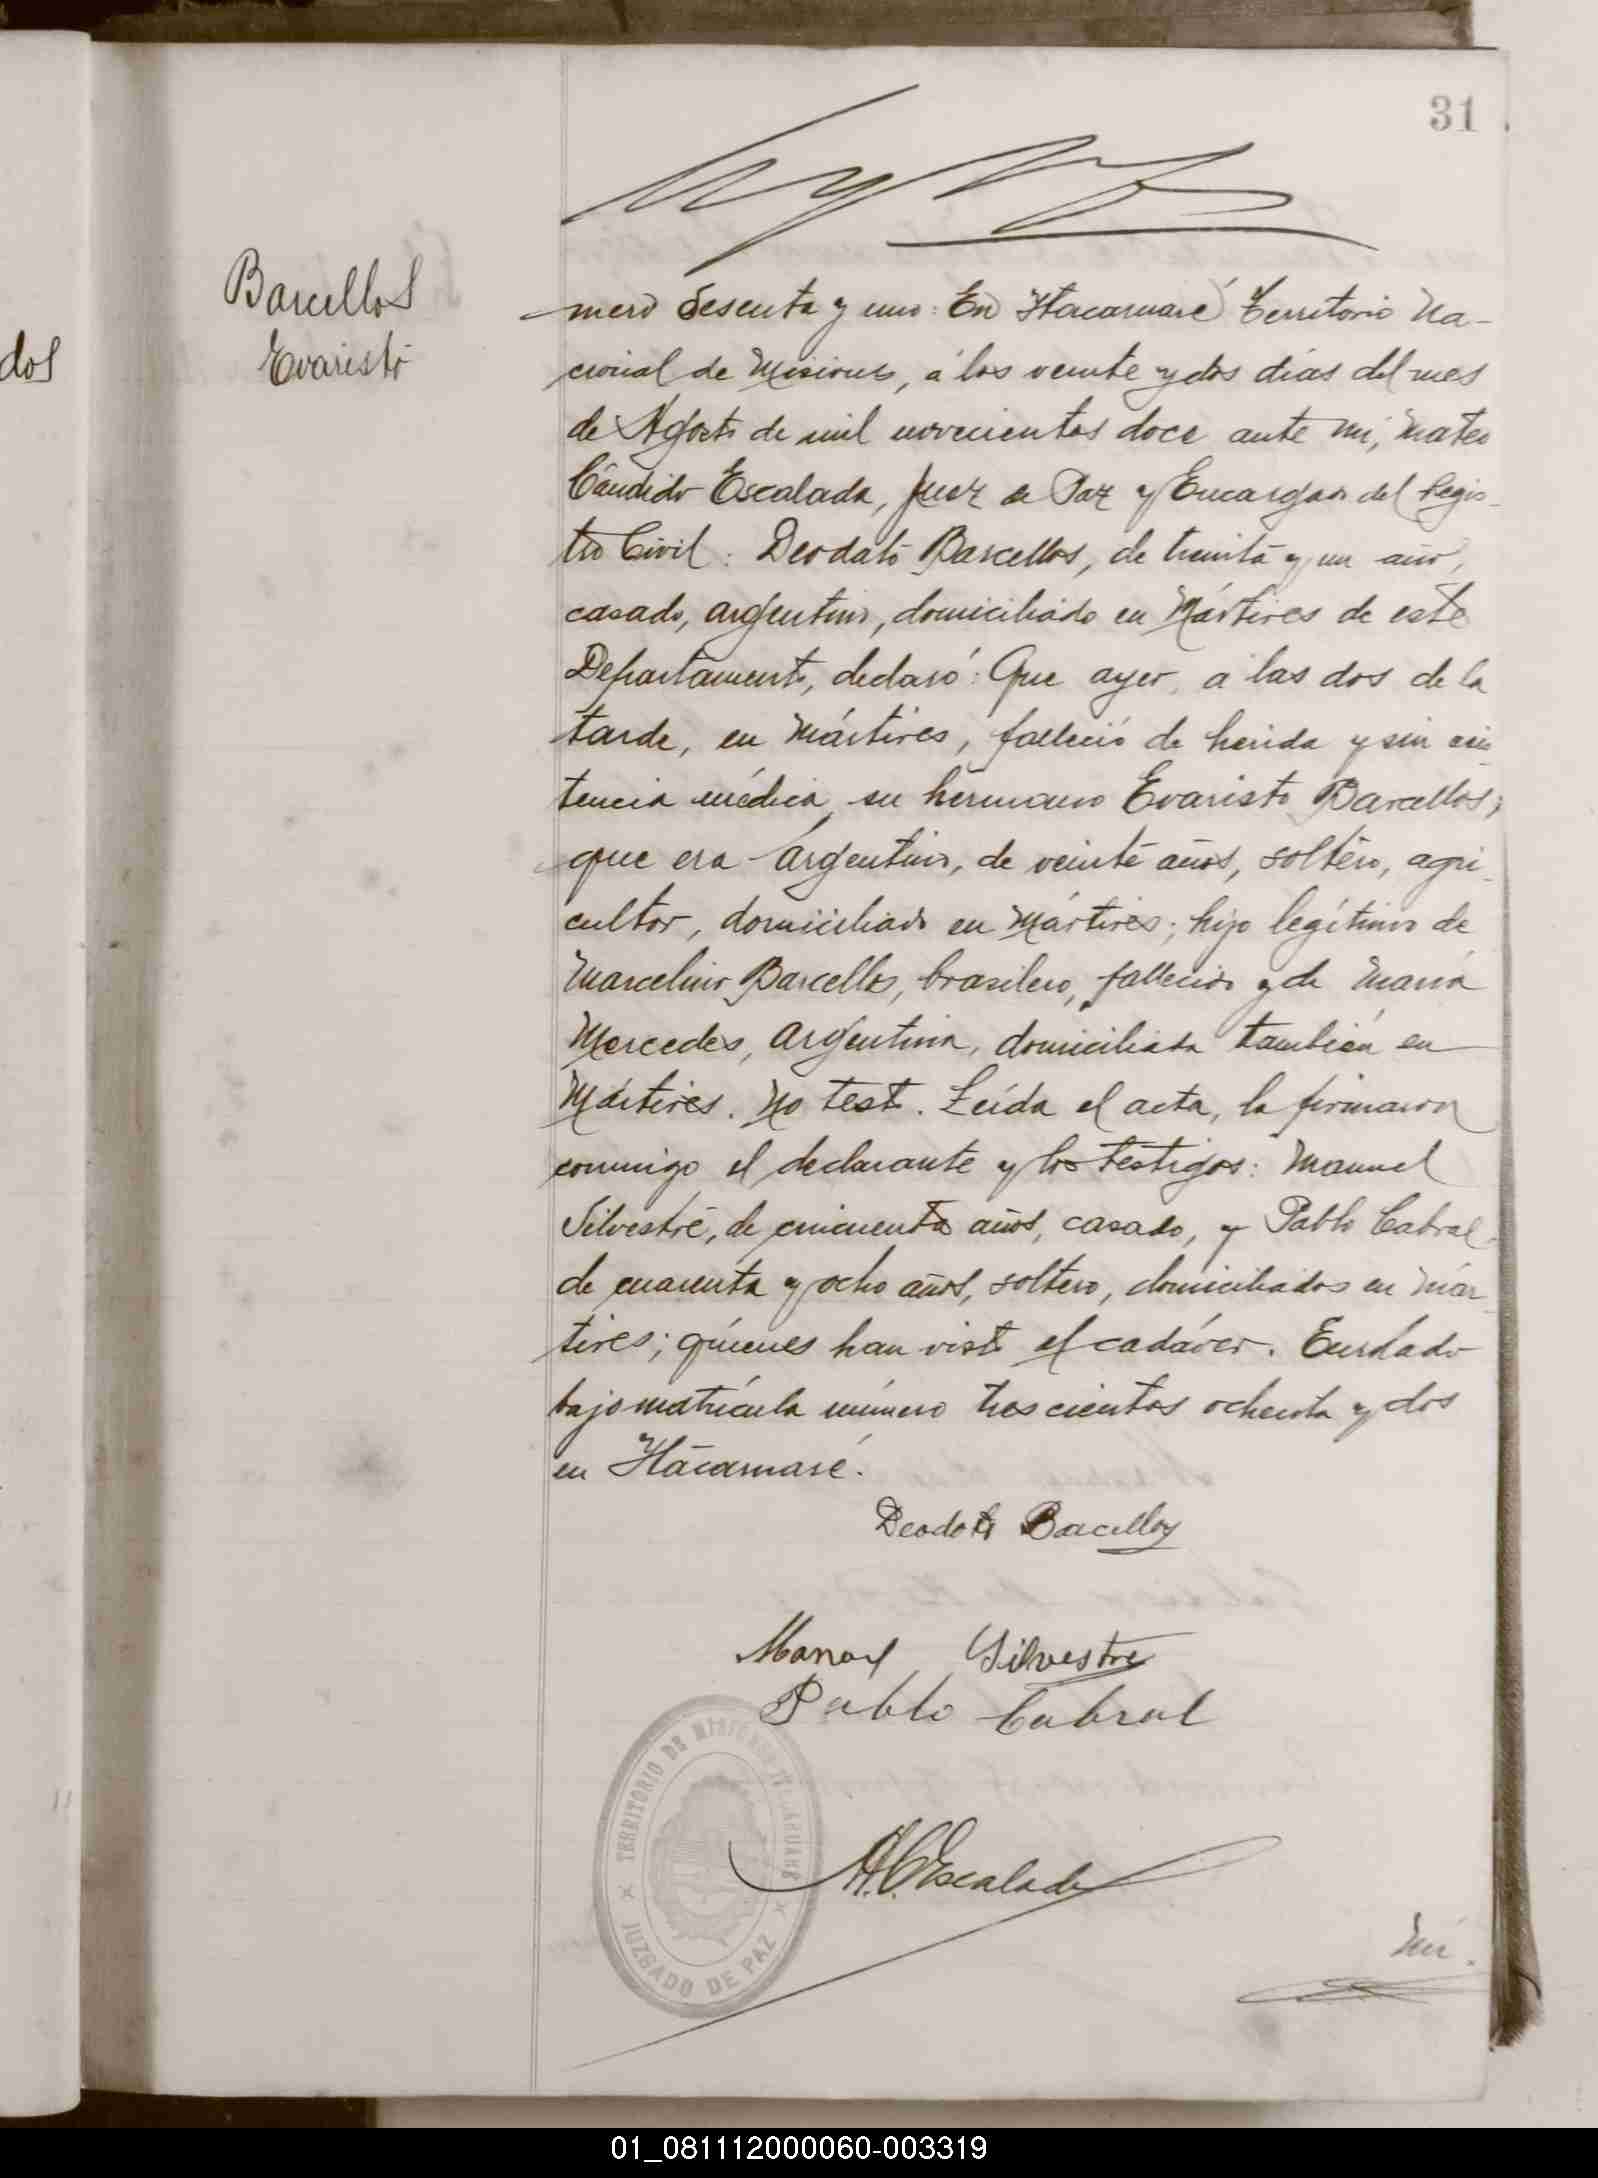 31
Barcellos
Evaristo
dos
mero Sesenta y uno: En Itacaruaré Territorio Na-
cional de Misiones, á los veinte y dos días del mes
de Agosto de mil novecientos doce ante mí, Mateo
Cándido Escalada, Juez de Paz y Encargado del Regis-
tro Civil: Deodato Barcellos, de treinta y un año,
casado, argentino, domiciliado en Mártires de este
Departamento, declaró: Que ayer, a las dos de la
tarde, en Mártires, falleció de herida y sin asis-
tencia médica, su hermano Evaristo Barcellos;
que era Argentino, de veinte años, soltero, agri-
cultor, domiciliado en Mártires; hijo legítimo de
Marcelino Barcellos, brasilero, fallecido y de María
Mercedes, Argentina, domiciliada también en
Mártires. No testó. Leída el acta, la firmaron
conmigo el declarante y los testigos: Manuel
Silvestre, de cincuenta años, casado, y Pablo Cabral
de cuarenta y ocho años, soltero, domiciliados en Már-
tires; quienes han visto el cadáver. Enrolado
bajo matrícula número trescientos ochenta y dos
en Itacaruaré.
Deodato Barcellos
Manoel Silvestre
Pablo Cabral
TERRITORIO DE MISIONES ITACARUARE
JUZGADO DE PAZ
M.C. Escalada
Nú.
01_081112000060-003319